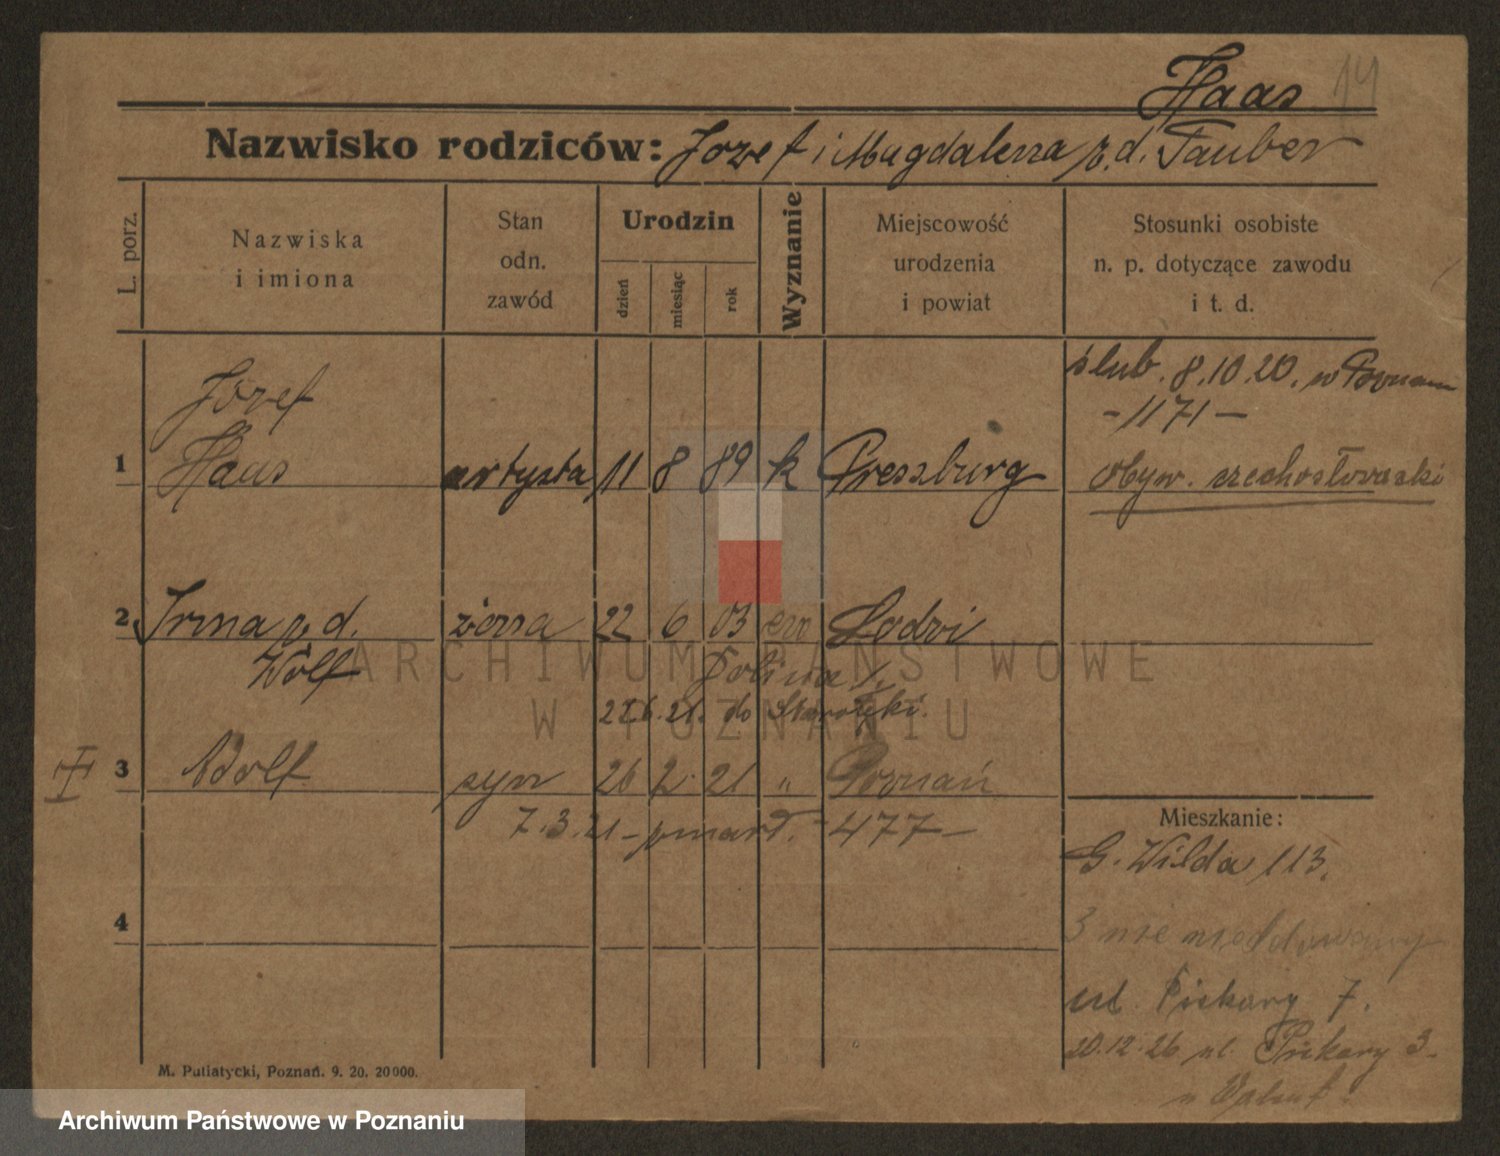 Haas 14
Nazwisko rodziców: Jozef i Magdalena z. d. Tauber
L. porz.
Nazwiska
i imiona
Stan
odn.
zawód
Urodzin
dzień
miesiąc
rok
Wyznanie
Miejscowość
urodzenia
i powiat
Stosunki osobiste
n. p. dotyczące zawodu
i t. d.
ślub. 8.10.20. w Poznaniu
- 1171 -
Józef
1 Haas artysta 11 8 89 k Pressburg obyw. czechosłowacki
2 Irma z d. żona 22 6 03 ew Lodzi
Wolf
21. do
3 Adolf syn 26 2. 21 " Poznań
7.3.21 - zmarł. - 477 -
Mieszkanie:
G. Wilda 113.
4
3 nie meldowany
ul. Piekary 7.
20.12.26 ul. Piekary 3
M. Putiatycki, Poznań. 9. 20. 20000.
ARCHIWUM PAŃSTWOWE
W POZNANIU
Archiwum Państwowe w Poznaniu